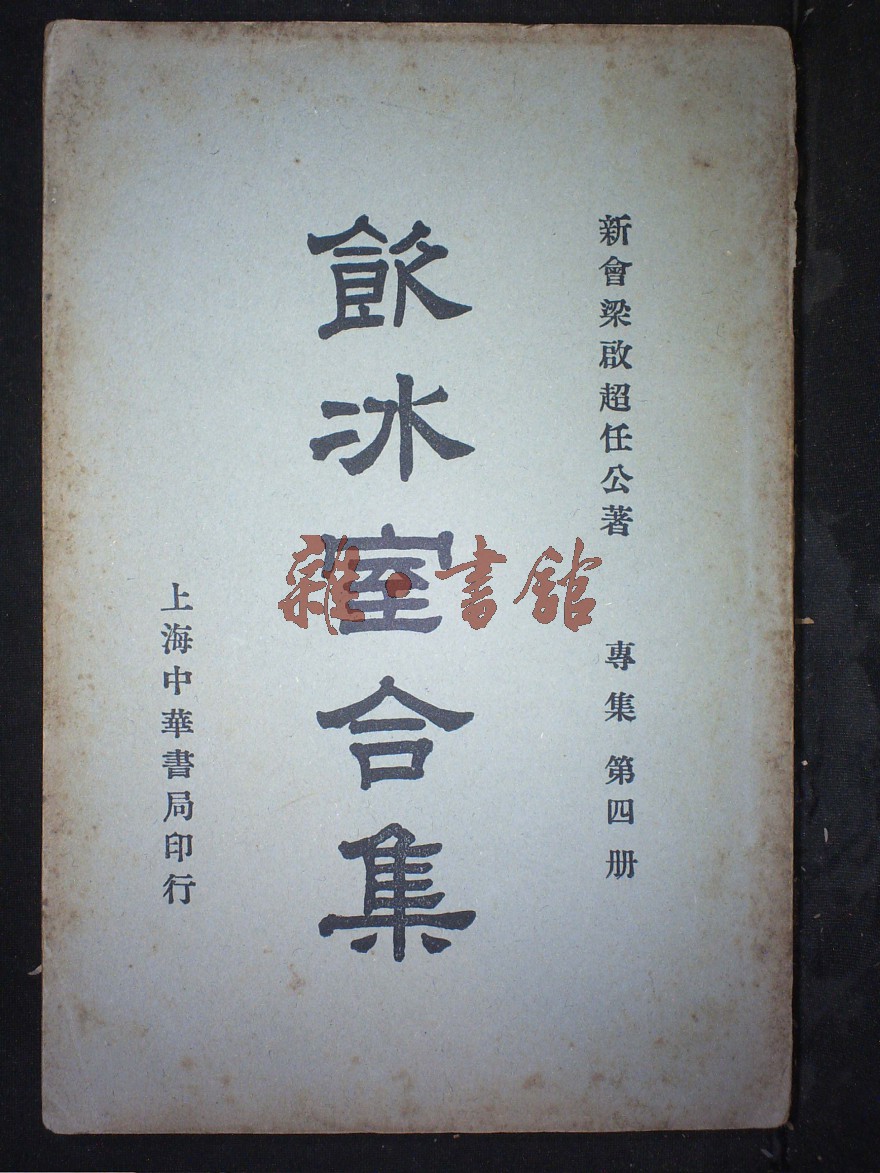 新會梁啟超任公著 專集 第四册
飲冰室合集
上海中華書局印行
雜·書館